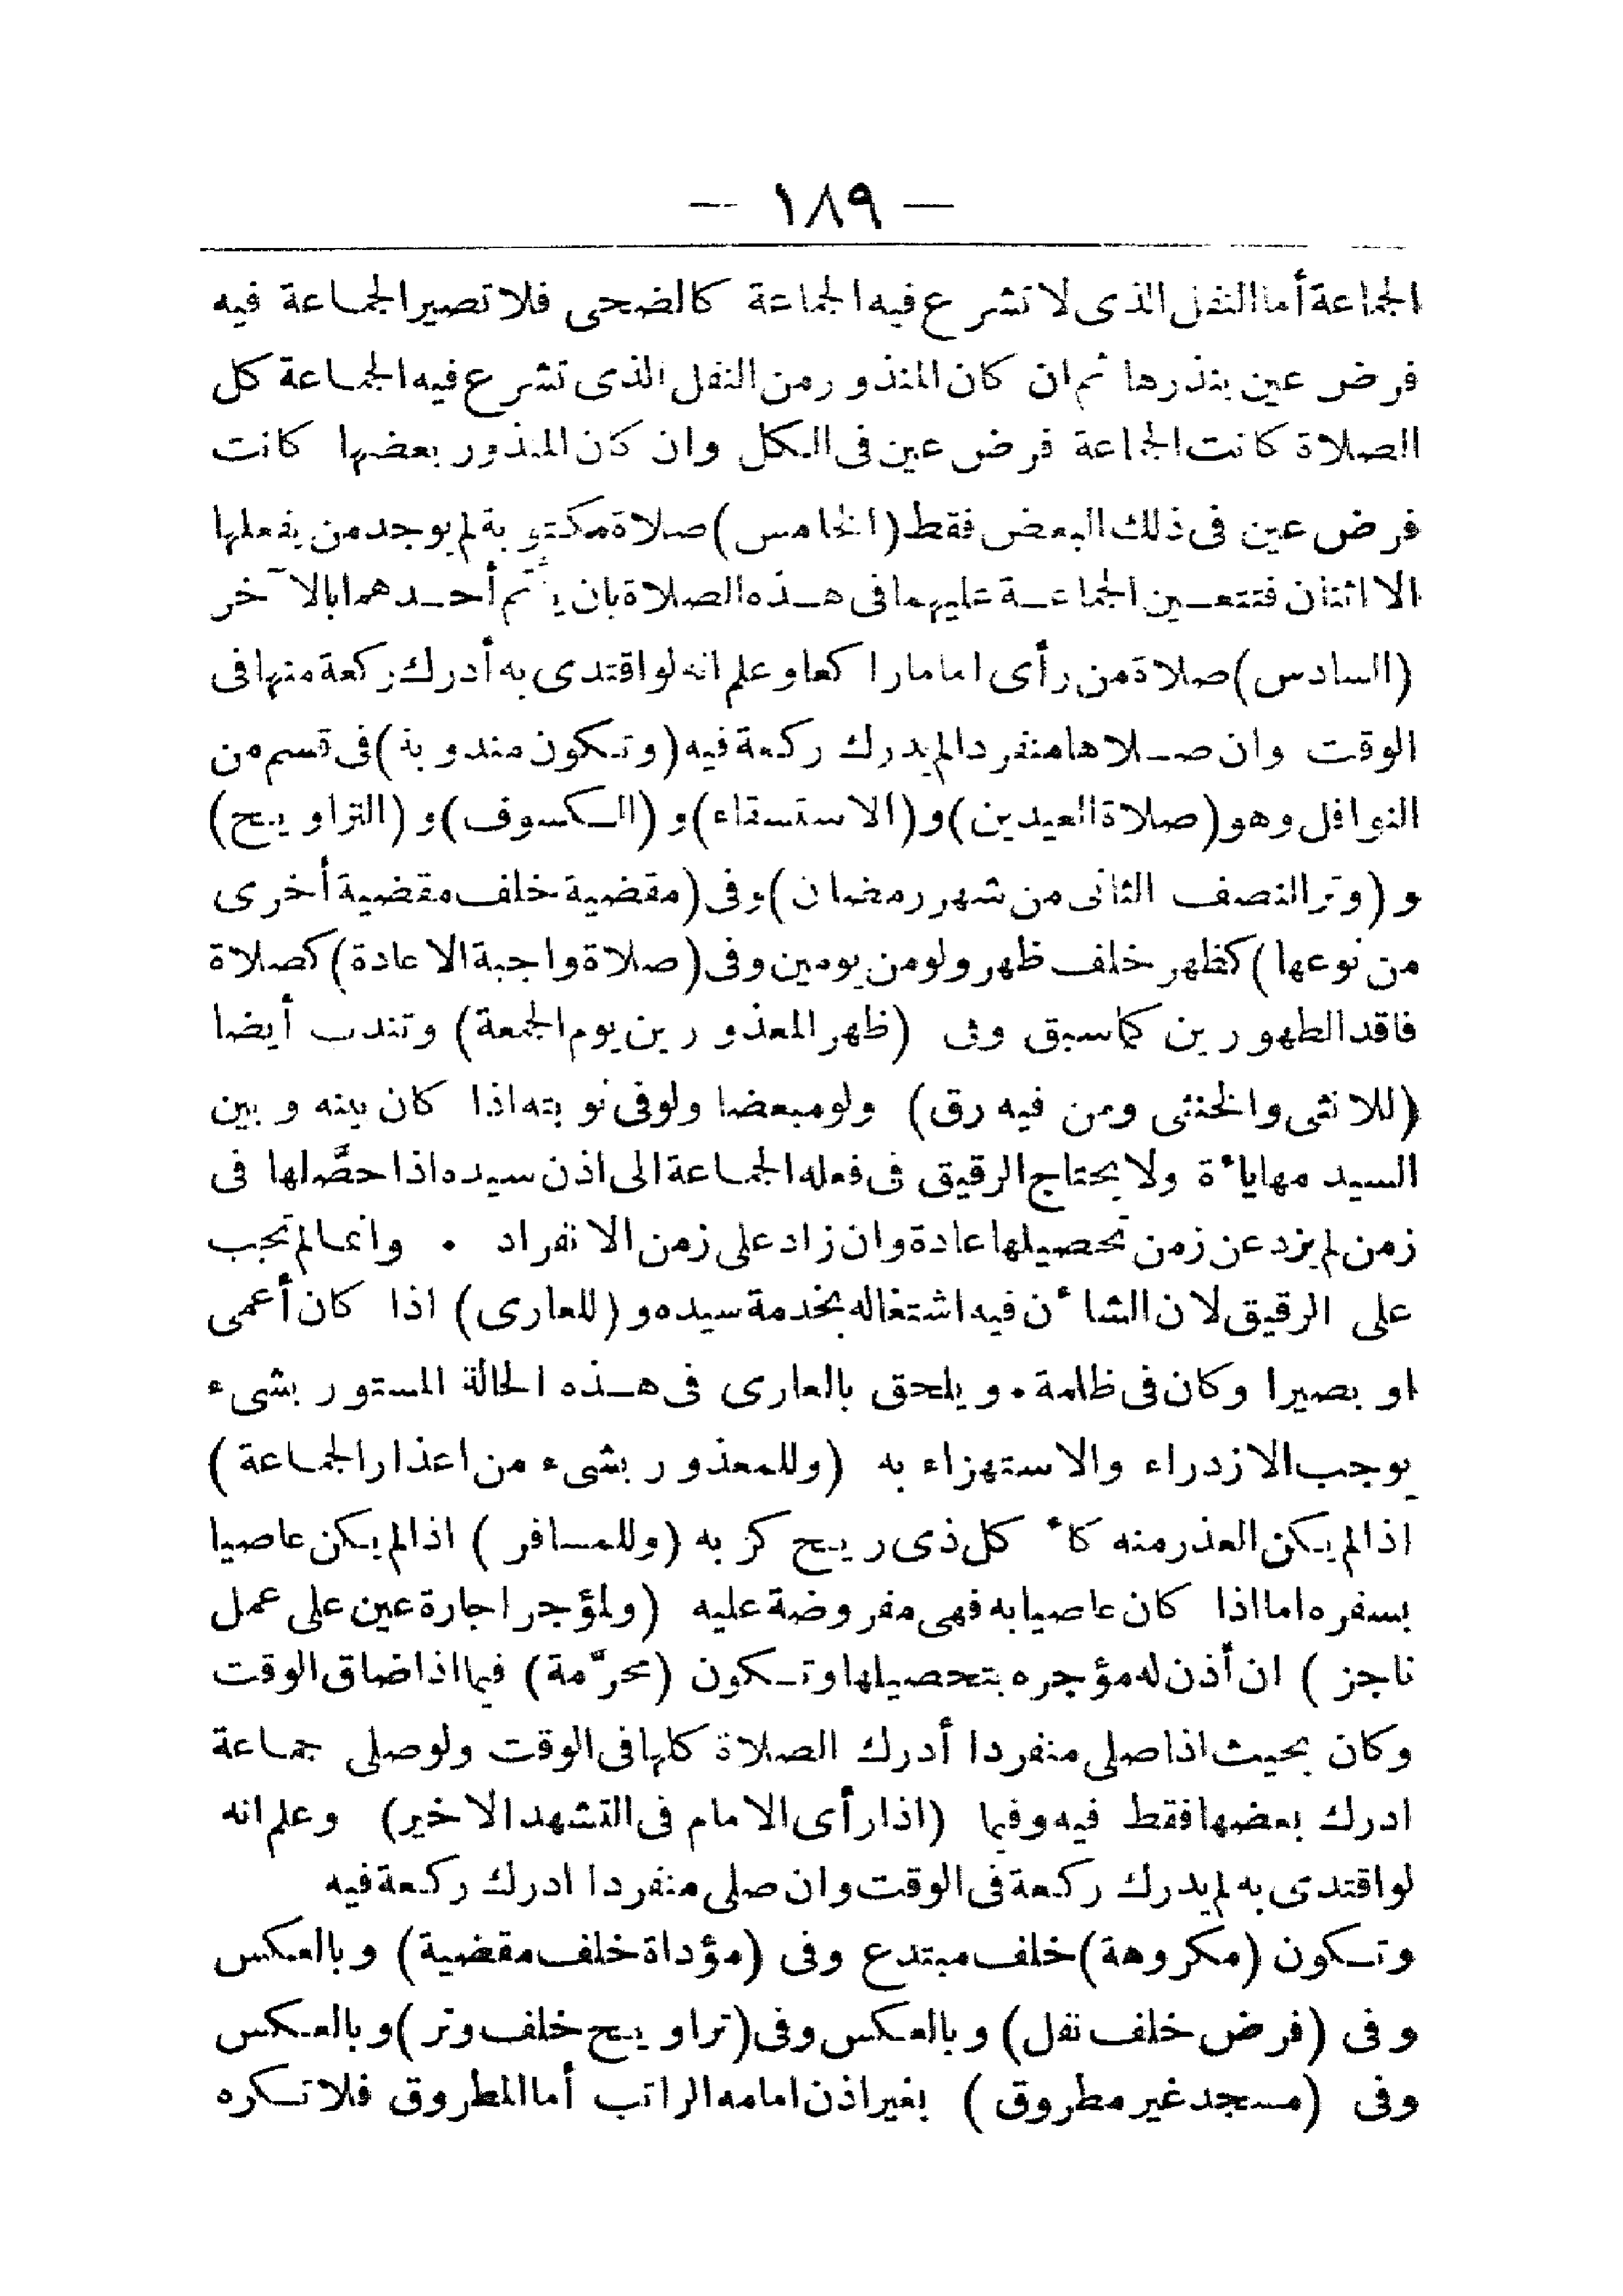 — ١٨٩ —
الجماعة أما النفل الذى لا تشرع فيه الجماعة كالضحى فلا تصير الجماعة فيه
فرض عين بنذرها ثم ان كان المنذور من النفل الذى تشرع فيه الجماعة كل
الصلاة كانت الجماعة فرض عين فى الكل وان كان المنذور بعضها كانت
فرض عين فى ذلك البعض فقط (الخامس) صلاة مكتوبة لم يوجد من يفعلها
الا اثنان فتتعين الجماعة عليهما فى هذه الصلاة بان يأتم أحدهما بالآخر
(السادس) صلاة من رأى اماما راكعا وعلم انه لو اقتدى به أدرك ركعة منها فى
الوقت وان صلاها منفردا لم يدرك ركعة فيه (وتكون مندوبة) فى قسم من
النوافل وهو (صلاة العيدين) و (الاستسقاء) و (الكسوف) و (التراويح)
و (وتر النصف الثانى من شهر رمضان) وفى (مقضية خلف مقضية أخرى
من نوعها) كظهر خلف ظهر ولو من يومين وفى (صلاة واجبة الاعادة) كصلاة
فاقد الطهورين كما سبق وفى (ظهر المعذورين يوم الجمعة) وتندب أيضا
(للانثى والخنثى ومن فيه رق) ولو مبعضا ولو فى نوبته اذا كان بينه وبين
السيد مهايأة ولا يحتاج الرقيق فى فعله الجماعة الى اذن سيده اذا حصَّلها فى
زمن لم يزد عن زمن تحصيلها عادة وان زاد على زمن الانفراد . وانما لم تجب
على الرقيق لان الشأن فيه اشتغاله بخدمة سيده و (للعارى) اذا كان أعمى
او بصيرا وكان فى ظلمة . ويلحق بالعارى فى هذه الحالة المستور بشىء
يوجب الازدراء والاستهزاء به (وللمعذور بشىء من اعذار الجماعة)
اذا لم يكن العذر منه كأكل ذى ريح كربه (وللمسافر) اذا لم يكن عاصيا
بسفره اما اذا كان عاصيا به فهى مفروضة عليه (ولمؤجر اجارة عين على عمل
ناجز) ان أذن له مؤجره بتحصيلها وتكون (محرَّمة) فيما اذا ضاق الوقت
وكان بحيث اذا صلى منفردا أدرك الصلاة كلها فى الوقت ولو صلى جماعة
ادرك بعضها فقط فيه وفيما (اذا رأى الامام فى التشهد الاخير) وعلم انه
لو اقتدى به لم يدرك ركعة فى الوقت وان صلى منفردا ادرك ركعة فيه
وتكون (مكروهة) خلف مبتدع وفى (مؤداة خلف مقضية) وبالعكس
وفى (فرض خلف نفل) وبالعكس وفى (تراويح خلف وتر) وبالعكس
وفى (مسجد غير مطروق) بغير اذن امامه الراتب أما المطروق فلا تكره